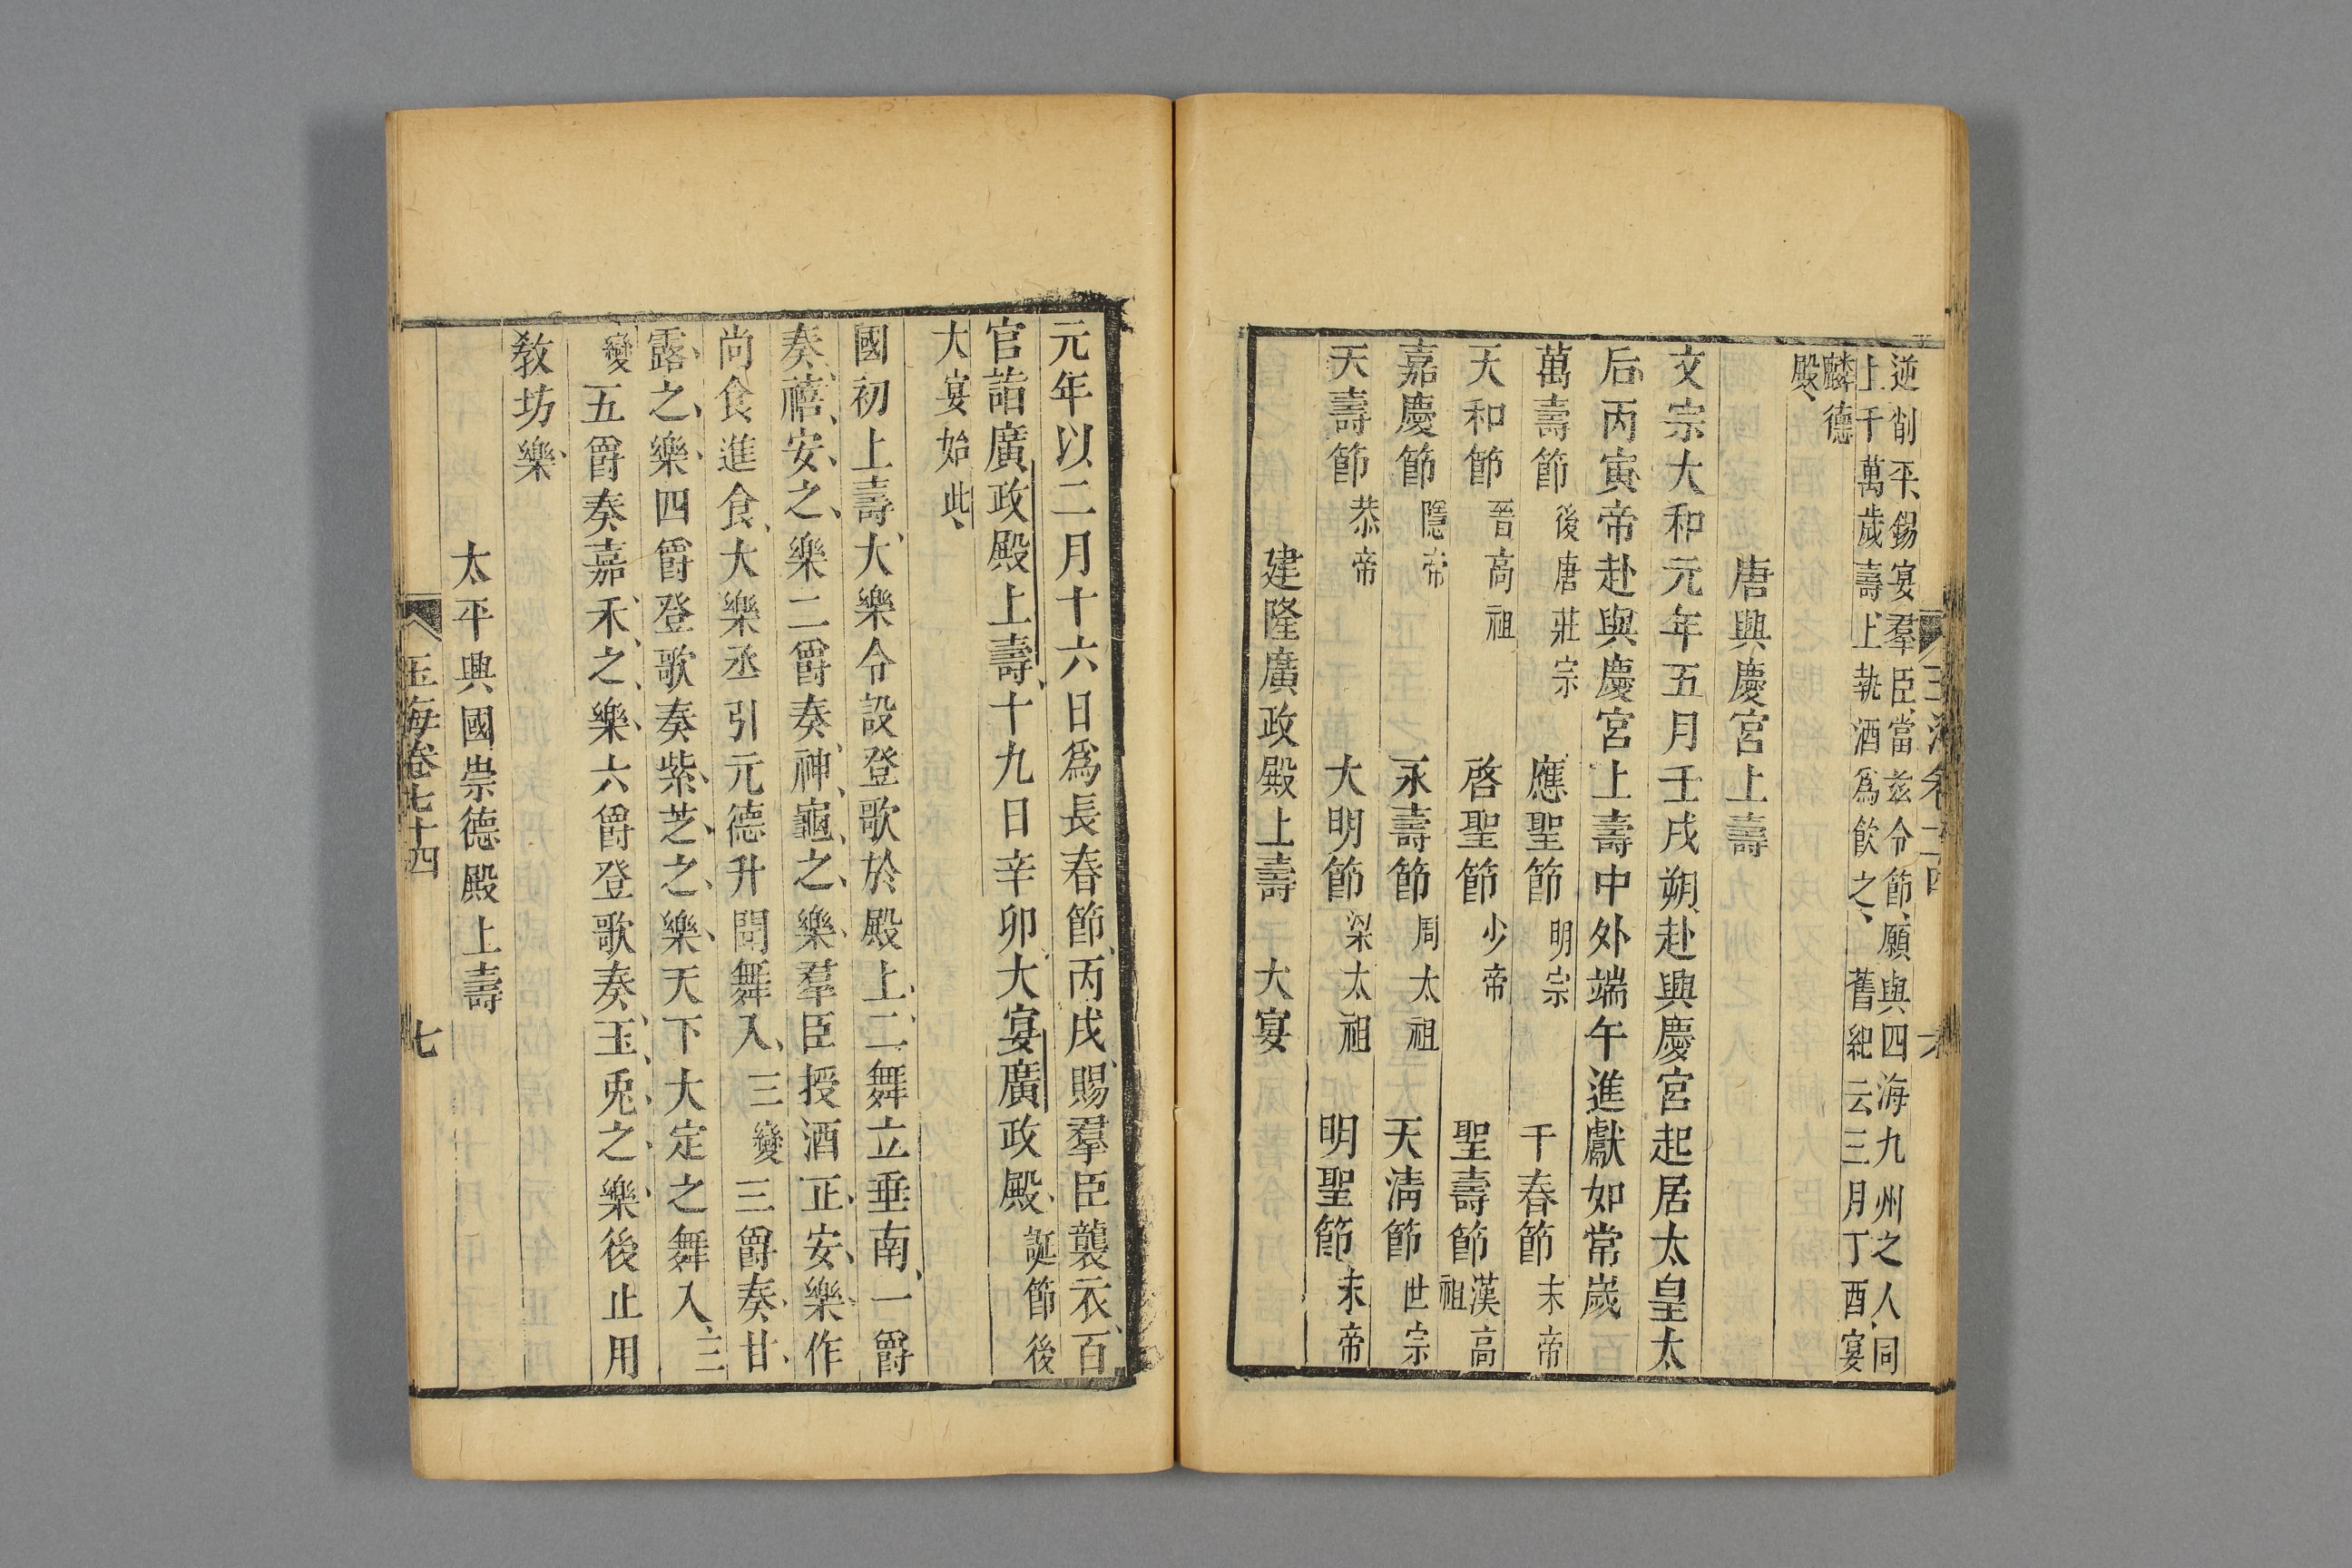 逆削平錫宴羣臣當茲令節願與四海九州之人同
上千萬歲壽上執酒爲飲之舊紀云三月丁酉宴
麟德
殿
唐興慶宮上壽
文宗大和元年五月壬戌朔赴興慶宮起居太皇太
后丙寅帝赴興慶宮上壽中外端午進獻如常歲
萬壽節後唐莊宗 應聖節明宗 千春節末帝
天和節晉高祖 啓聖節少帝 聖壽節漢高祖
嘉慶節隱帝 永壽節周太祖 天清節世宗
天壽節恭帝 大明節梁太祖 明聖節末帝
建隆廣政殿上壽 大宴
元年以二月十六日爲長春節丙戌賜羣臣襲衣百
官詣廣政殿上壽十九日辛卯大宴廣政殿誕節後
大宴始此
國初上壽大樂令設登歌於殿上二舞立垂南一爵
奏禧安之樂二爵奏神龜之樂羣臣授酒正安樂作
尚食進食大樂丞引元德升聞舞入三變三爵奏甘
露之樂四爵登歌奏紫芝之樂天下大定之舞入三
變五爵奏嘉禾之樂六爵登歌奏玉兎之樂後止用
教坊樂
太平興國崇德殿上壽
玉海卷七十四 七